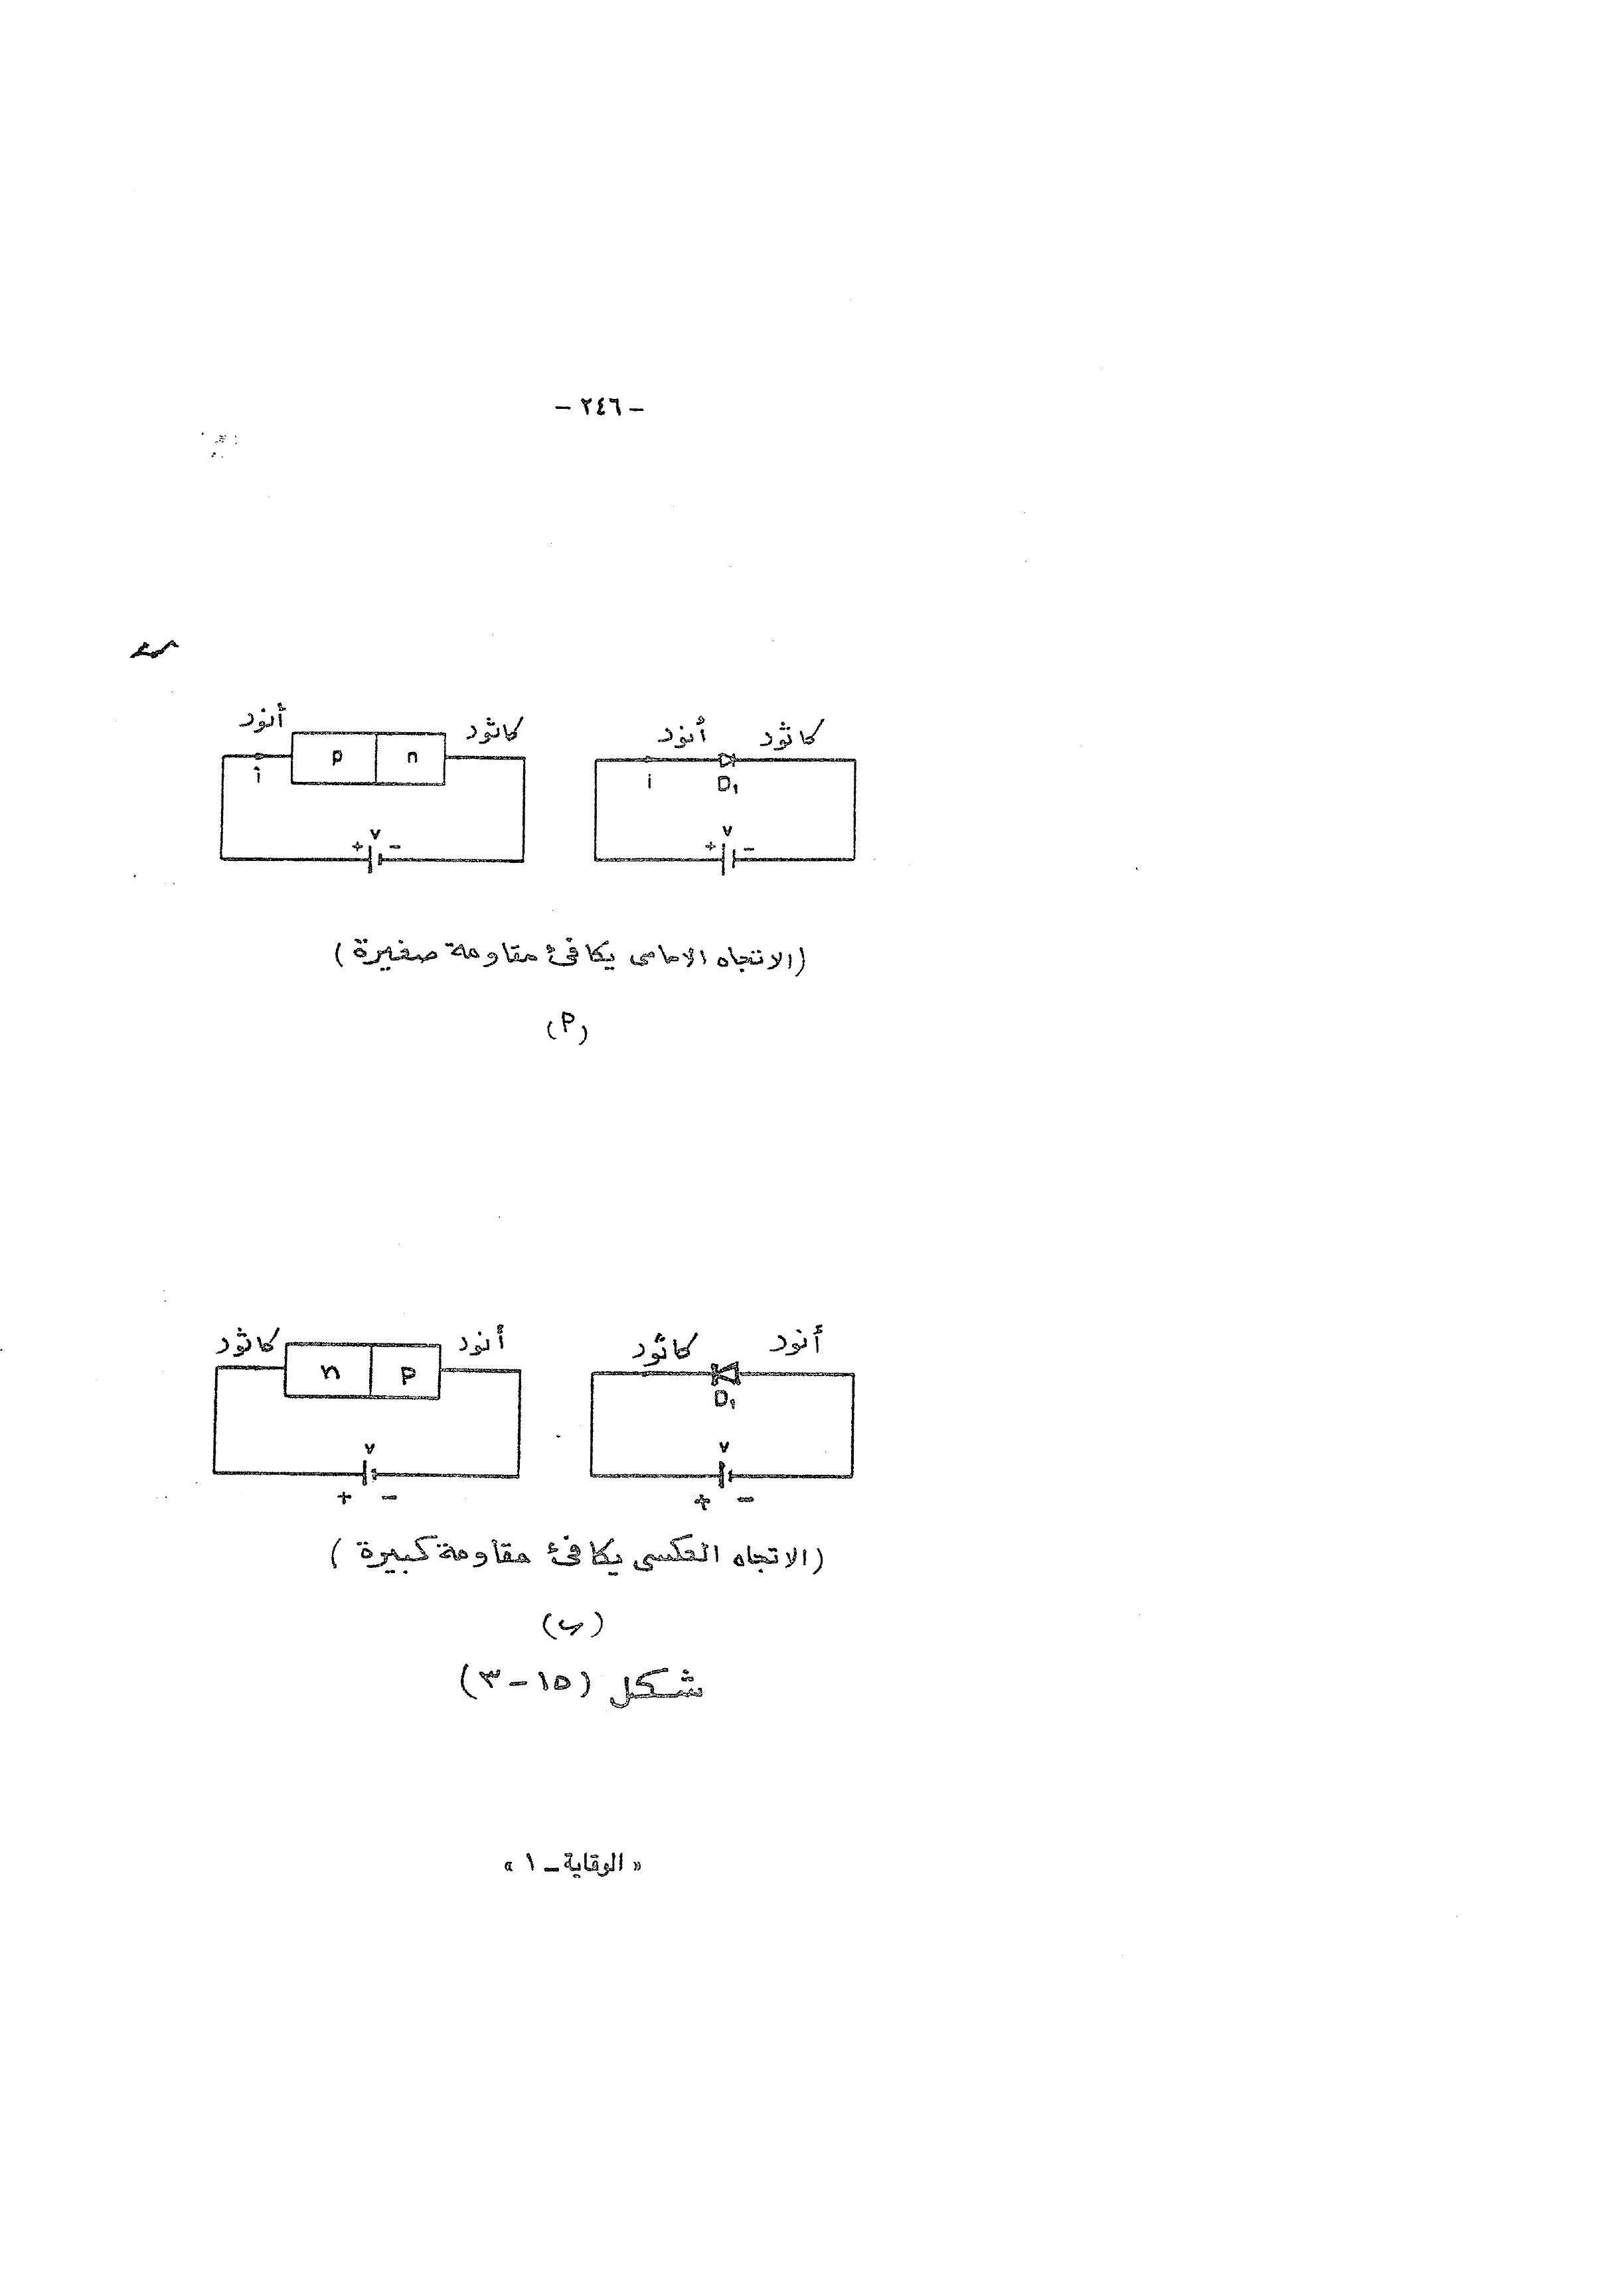 - ٢٤٦ -
أنود كاثود أنود كاثود
p n
i i D₁
v v
+ - + -
(الاتجاه الامامى يكافئ مقاومة صغيرة)
(أ)
كاثود أنود كاثود أنود
n p
D₁
v v
+ - + -
(الاتجاه العكسى يكافئ مقاومة كبيرة)
(ب)
شكل (١٥-٣)
« الوقاية - ١ »